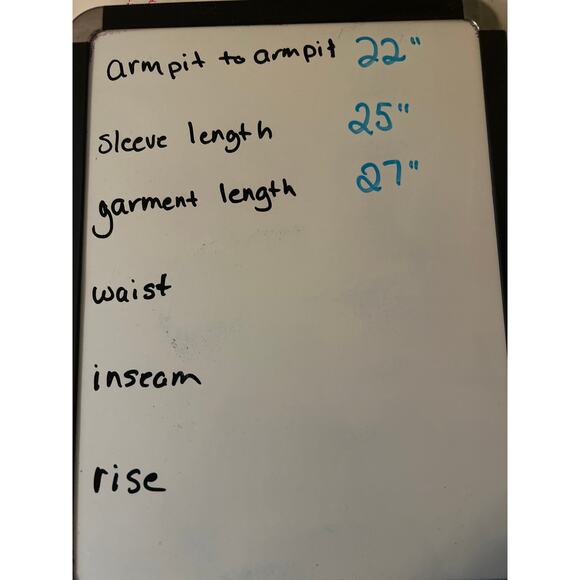 armpit to armpit 22"
sleeve length 25"
garment length 27"
waist
inseam
rise